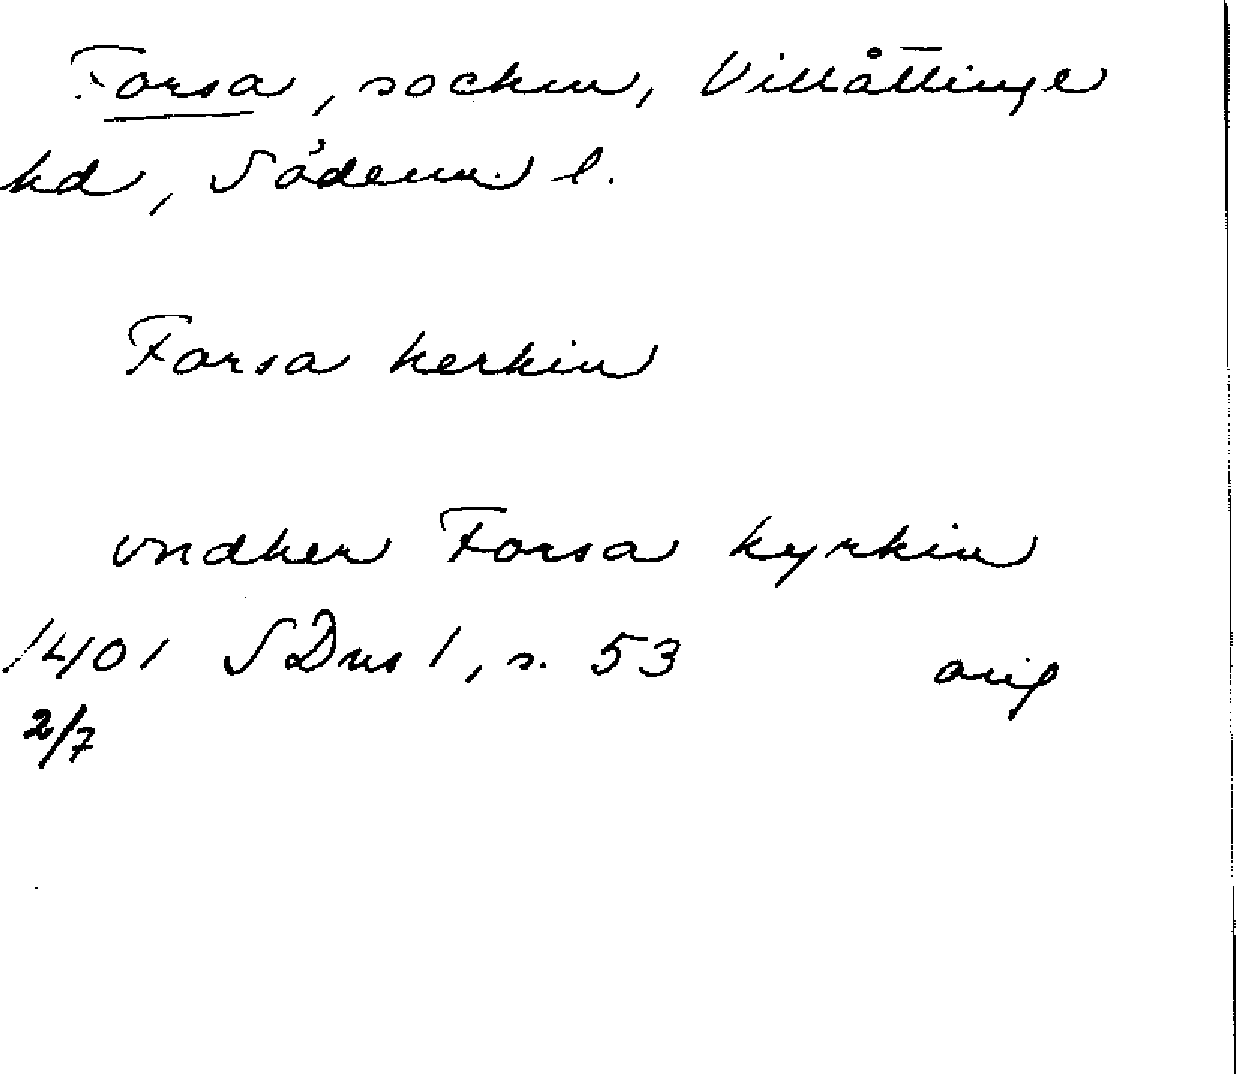 Forsa, socken, Villåttinge
hd, Söderm. l.
Forsa kerkin
vndher Forsa kyrkin
1401 SDns 1, s. 53 orig
2/7